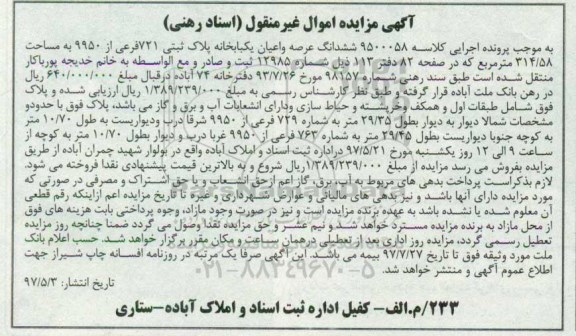 آگهی مزایده اموال غیرمنقول (اسناد رهنی)
به موجب پرونده اجرایی کلاسه ۹۵۰۰۰۵۸ ششدانگ عرصه واعیان یکبابخانه پلاک ثبتی ۷۲۱فرعی از ۹۹۵۰ به مساحت
۳۱۴/۵۸ مترمربع که در صفحه ۸۲دفتر ۱۱۰ ذیل شماره ۱۲۹۸۵ ثبت و صادر و مع الواسطه به خانم خدیجه پورباکار
منتقل شده است طبق سند رهنی شماره ۹۸۱۵۷ مورخ ۹۳/۷/۲۶ دفترخانه ۷۴ آباده درقبال مبلغ ۶۴۰/۰۰۰/۰۰۰ ریال
در رهن بانک ملت آباده قرار گرفته و طبق نظر کارشناس رسمی به مبلغ ۱/۳۸۹/۲۳۹/۰۰۰ ریال ارزیابی شده و پلاک
فوق شامل طبقات اول و همکف و حیاط سازی ودارای انشعابات آب و برق و گاز می باشد، پلاک فوق با حدودو
مشخصات شمالا دیوار به دیوار بطول ۲۹/۳۵ متر به شماره ۷۲۹ فرعی از ۹۹۵۰ شرقا درب ودیواریست به طول ۱۰/۷۰ متر
به کوچه جنوبا دیواریست بطول ۲۹/۴۵ متر به شماره ۷۶۳ فرعی از ۹۹۵۰ غربا درب و دیوار بطول ۱۰/۷۰ متر به کوچه از
ساعت ۹ الی ۱۲ روز یکشنبه مورخ ۹۷/۵/۲۱ دراداره ثبت اسناد و املاک آباده واقع در بولوار شهید چمران آباده از طریق
مزایده بفروش می رسد مزایده از مبلغ ۱/۳۸۹/۲۳۹/۰۰۰ریال شروع و به بالاترین قیمت پیشنهادی نقدا فروخته می شود.
لازم بذکراست پرداخت بدهی های مربوط به آب، برق، گاز اعم ازحق انشعاب و یا حق اشتراک و مصرفی در صورتی که
مورد مزایده دارای آنها باشد و نیز بدهی های مالیاتی و عوارض شهرداری و غیره تا تاریخ مزایده اعم ازاینکه رقم قطعی
آن معلوم شده یا نشده باشد به عهده برنده مزایده است و نیز در صورت وجود مازاد، وجوه پرداختی بابت هزینه های فوق
از محل مازاد به برنده مزایده مسترد خواهد شد و نیم عشر و حق مزایده نقدا وصول می گردد ضمنا چنانچه روز مزایده
تعطیل رسمی گردد، مزایده روز اداری بعد از تعطیلی درهمان ساعت و مکان مقرر برگزار خواهد شد. حسب اعلام بانک
ملت مورد وثیقه فوق تا تاریخ ۹۷/۷/۲۷ بیمه می باشد. این آگهی صرفا یک مرتبه در روزنامه افسانه چاپ شیراز جهت
اطلاع عموم آگهی و منتشر خواهد شد.
تاریخ انتشار: ۹۷/۵/۳
۲۳۳/م.الف- کفیل اداره ثبت اسناد و املاک آباده-ستاری
۰۲۱-۸۸۳۴۹۶۷۰-۵